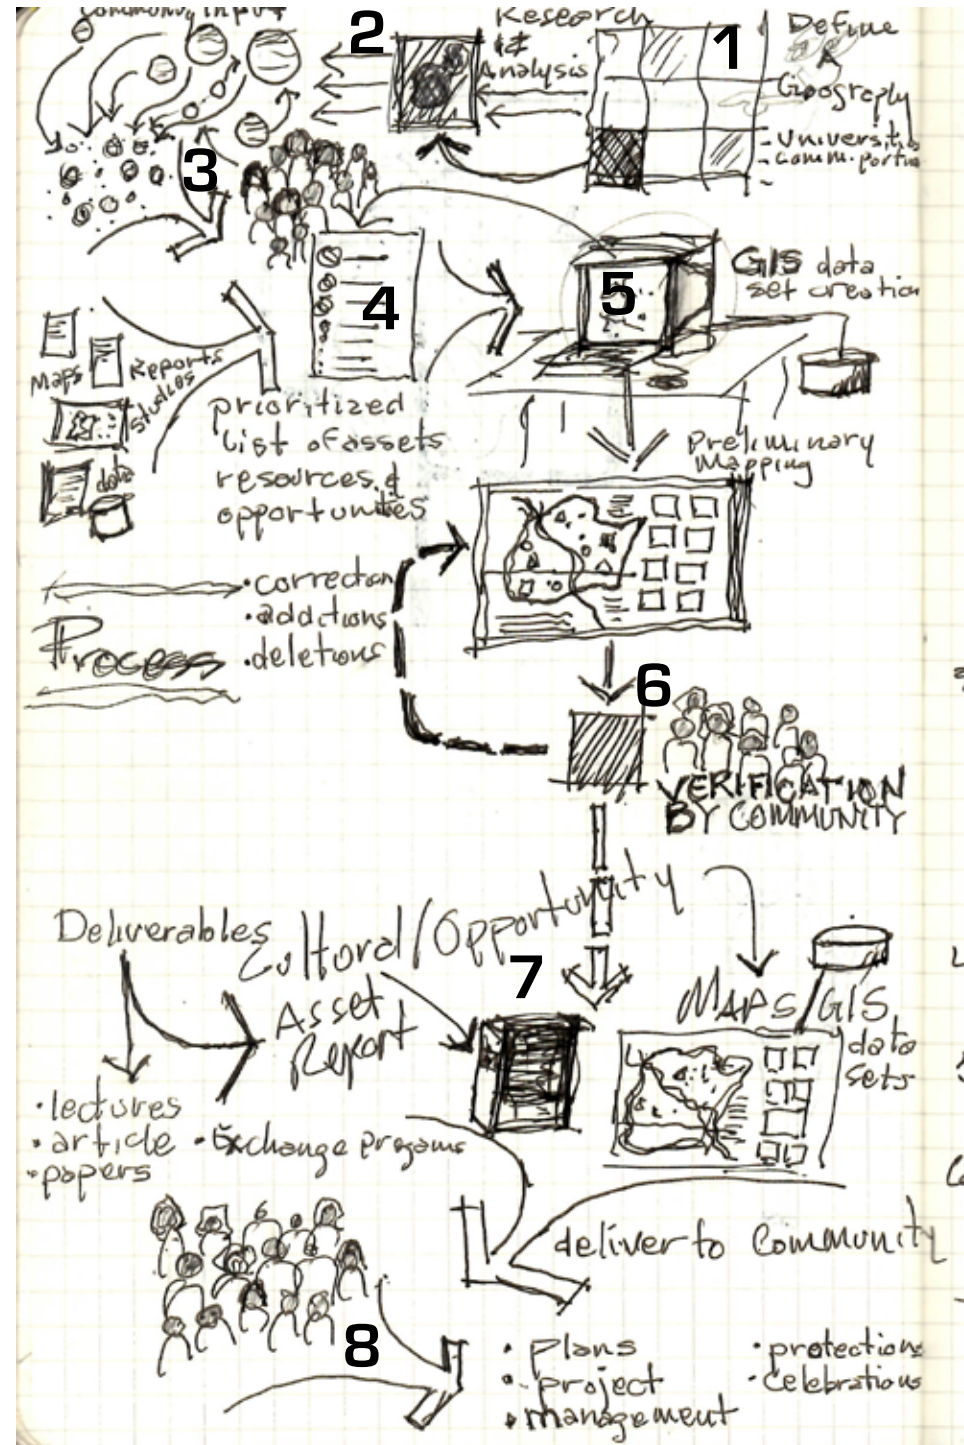 Community input
2
Research
&
Analysis
1
Define
A
Geography
- Universities
- Comm. partne
3
4
5
GIS data
set creation
Maps
Reports
Studies
data
prioritized
list of assets
resources &
opportunities
Preliminary
Mapping
• correction
• additions
• deletions
Process
6
VERIFICATION
BY COMMUNITY
Deliverables
Cultural/Opportunity
Asset
Report
7
MAPS/GIS
data
sets
• lectures
• article
• papers
• Exchange Progams
deliver to Community
8
• Plans
• project
• management
• protections
• celebrations